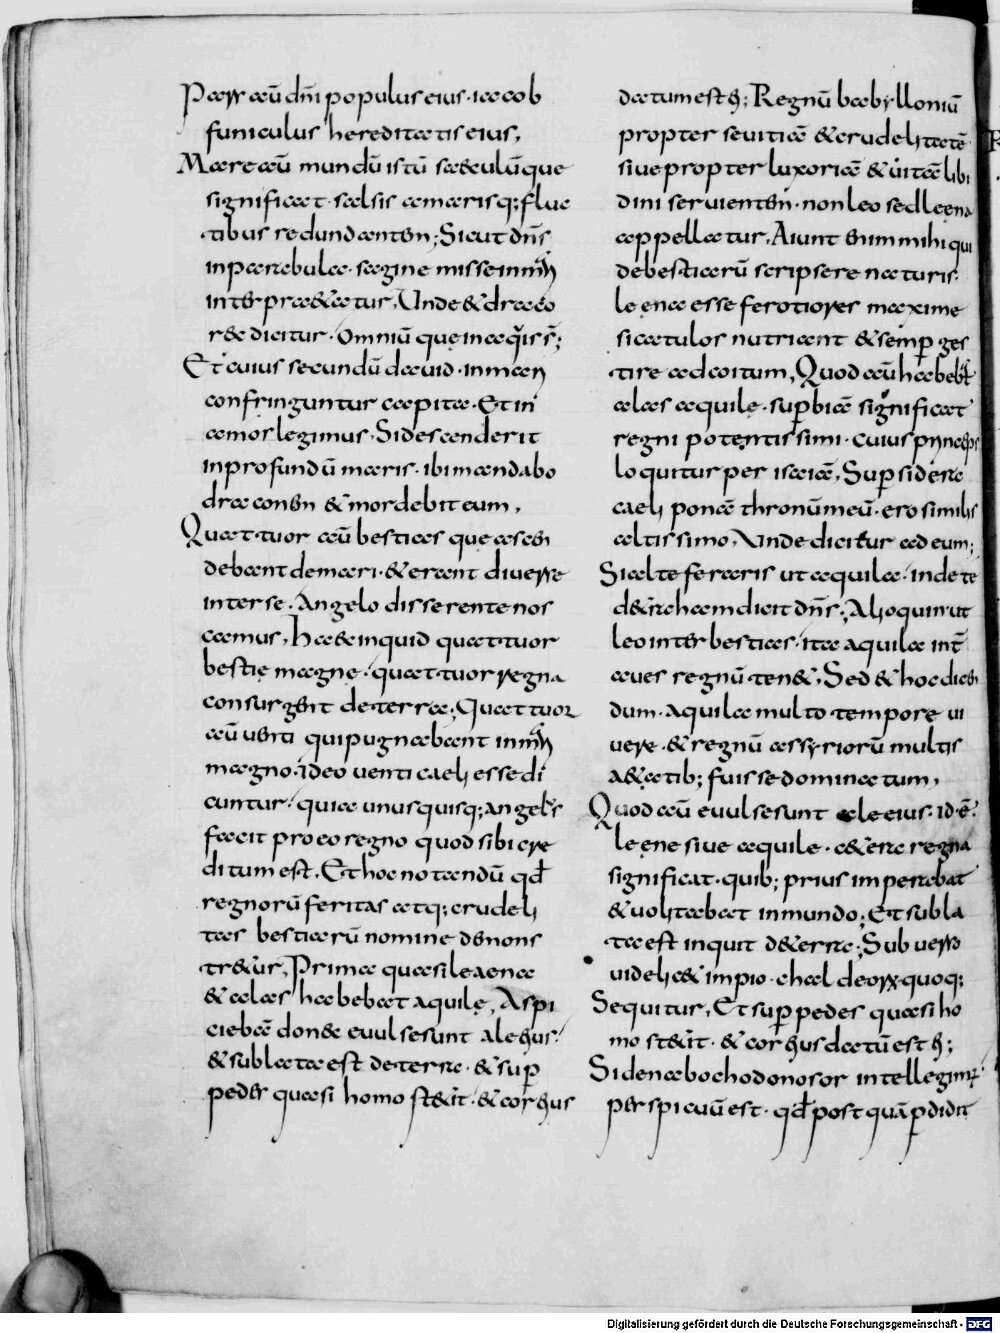 Pars aũ dñi populus eius · iacob
funiculus hereditatis eius,
Mare aũ mundũ istũ sæculũque
significat · salsis amarisq; fluc
tibus redundantem; Sicut dñs
in parabula · sagine misse in mari
interpretatur, Unde & draco
r& dicitur · Omniũ que in aquis s̃;
Et cuius secundũ dauid · in mari
confringuntur capita · Et in
amos legimus · Si descenderit
in profundũ maris · ibi mandabo
draconem & mordebit eum,
Quattuor aũ bestias que ascen
debant de mari · & erant diuerse
inter se · Angelo disserente nos
camus, Hæ inquid quattuor
bestie magne · quattuor regna
consurgent de terra; Quattuor
aũ uenti qui pugnabant in mari
magno · ideo uenti caeli esse di
cuntur · quia unusquisq; angelus
facit pro eo regno quod sibi cre
ditum est, Et hoc notandũ qđ
regnorũ feritas atq; crudeli
tas bestiarũ nomine demons
tr&ur, Prima quasi leaena
& alas habebat aquile, Aspi
ciebã donec euulse sunt ale eius ·
& sublata est de terra · & sup
pedes quasi homo st&it · & cor eius
datum est ei; Regnũ babylloniũ
propter seuitiã & crudelitatẽ
siue propter luxoriã & uitã libi
dini seruientem · non leo sed leena
appellatur, Aiunt enim mihi qui
de bestiarũ scripsere naturis ·
leenas esse ferotiores maxime
si catulos nutriant & semp ges
tire ad coitum, Quod aũ habebat
alas aquile · superbiã significat
regni potentissimi · cuius princeps
loquitur per isaiã, Sup sidera
caeli ponã thronũ meũ · ero similis
altissimo, Unde dicitur ad eum;
Si alte feraris ut aquila · inde te
d&raham dicit dñs; Alioquin ut
leo inter bestias · ita aquila int̃
aues regnũ ten&, Sed & hoc dicen
dum · aquila multo tempore ui
uere · & regnũ assyriorũ multis
a&atib; fuisse dominatum,
Quod aũ euulse sunt ale eius · id · ẽ ·
leene siue aquile · c&era regna
significat · quib; prius imperabat
& uolitabat in mundo; Et subla
ta est inquit d& terra; Subuerso
uidelic& impio · chaldeorx quoq;
Sequitur, Et sup pedes quasi ho
mo st&it · & cor eius datũ est ei;
Si de nabochodonosor intellegimus
perspicuũ est · qđ post quã pdidit